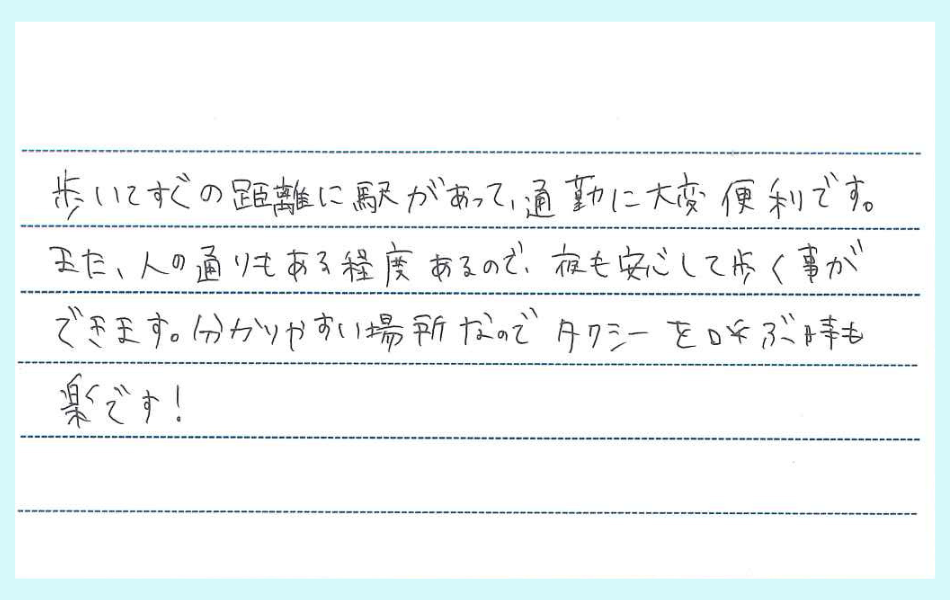 歩いてすぐの距離に駅があって、通勤に大変便利です。
また、人の通りもある経度あるので、夜も安心して歩く事が
できます。分かりやすい場所なのでタクシーを呼ぶ時も
楽です！